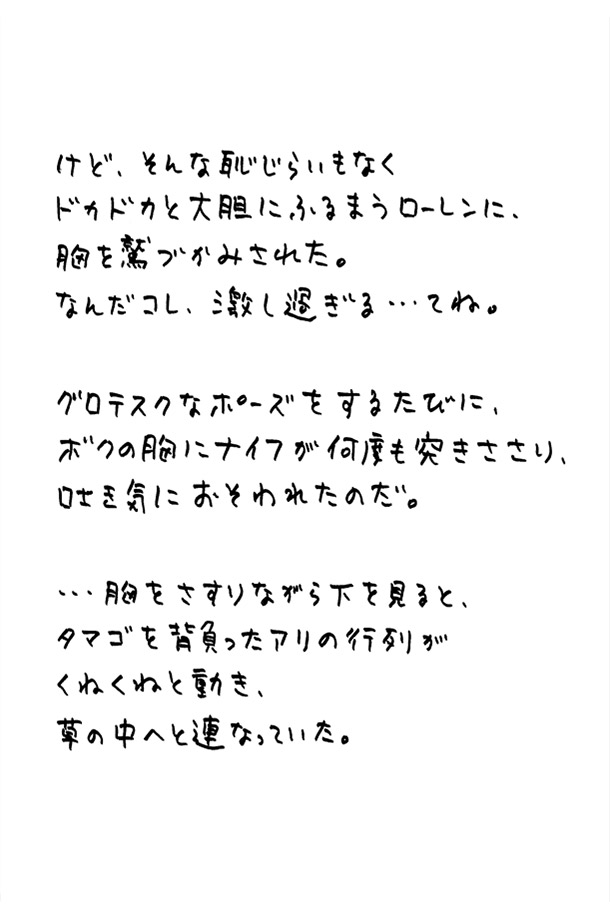 けど、そんな恥じらいもなく
ドカドカと大胆にふるまうローレンに、
胸を鷲づかみされた。
なんだコレ、激し過ぎる…てね。
グロテスクなポーズをするたびに、
ボクの胸にナイフが何度も突きささり、
吐き気におそわれたのだ。
…胸をさすりながら下を見ると、
タマゴを背負ったアリの行列が
くねくねと動き、
草の中へと連なっていた。